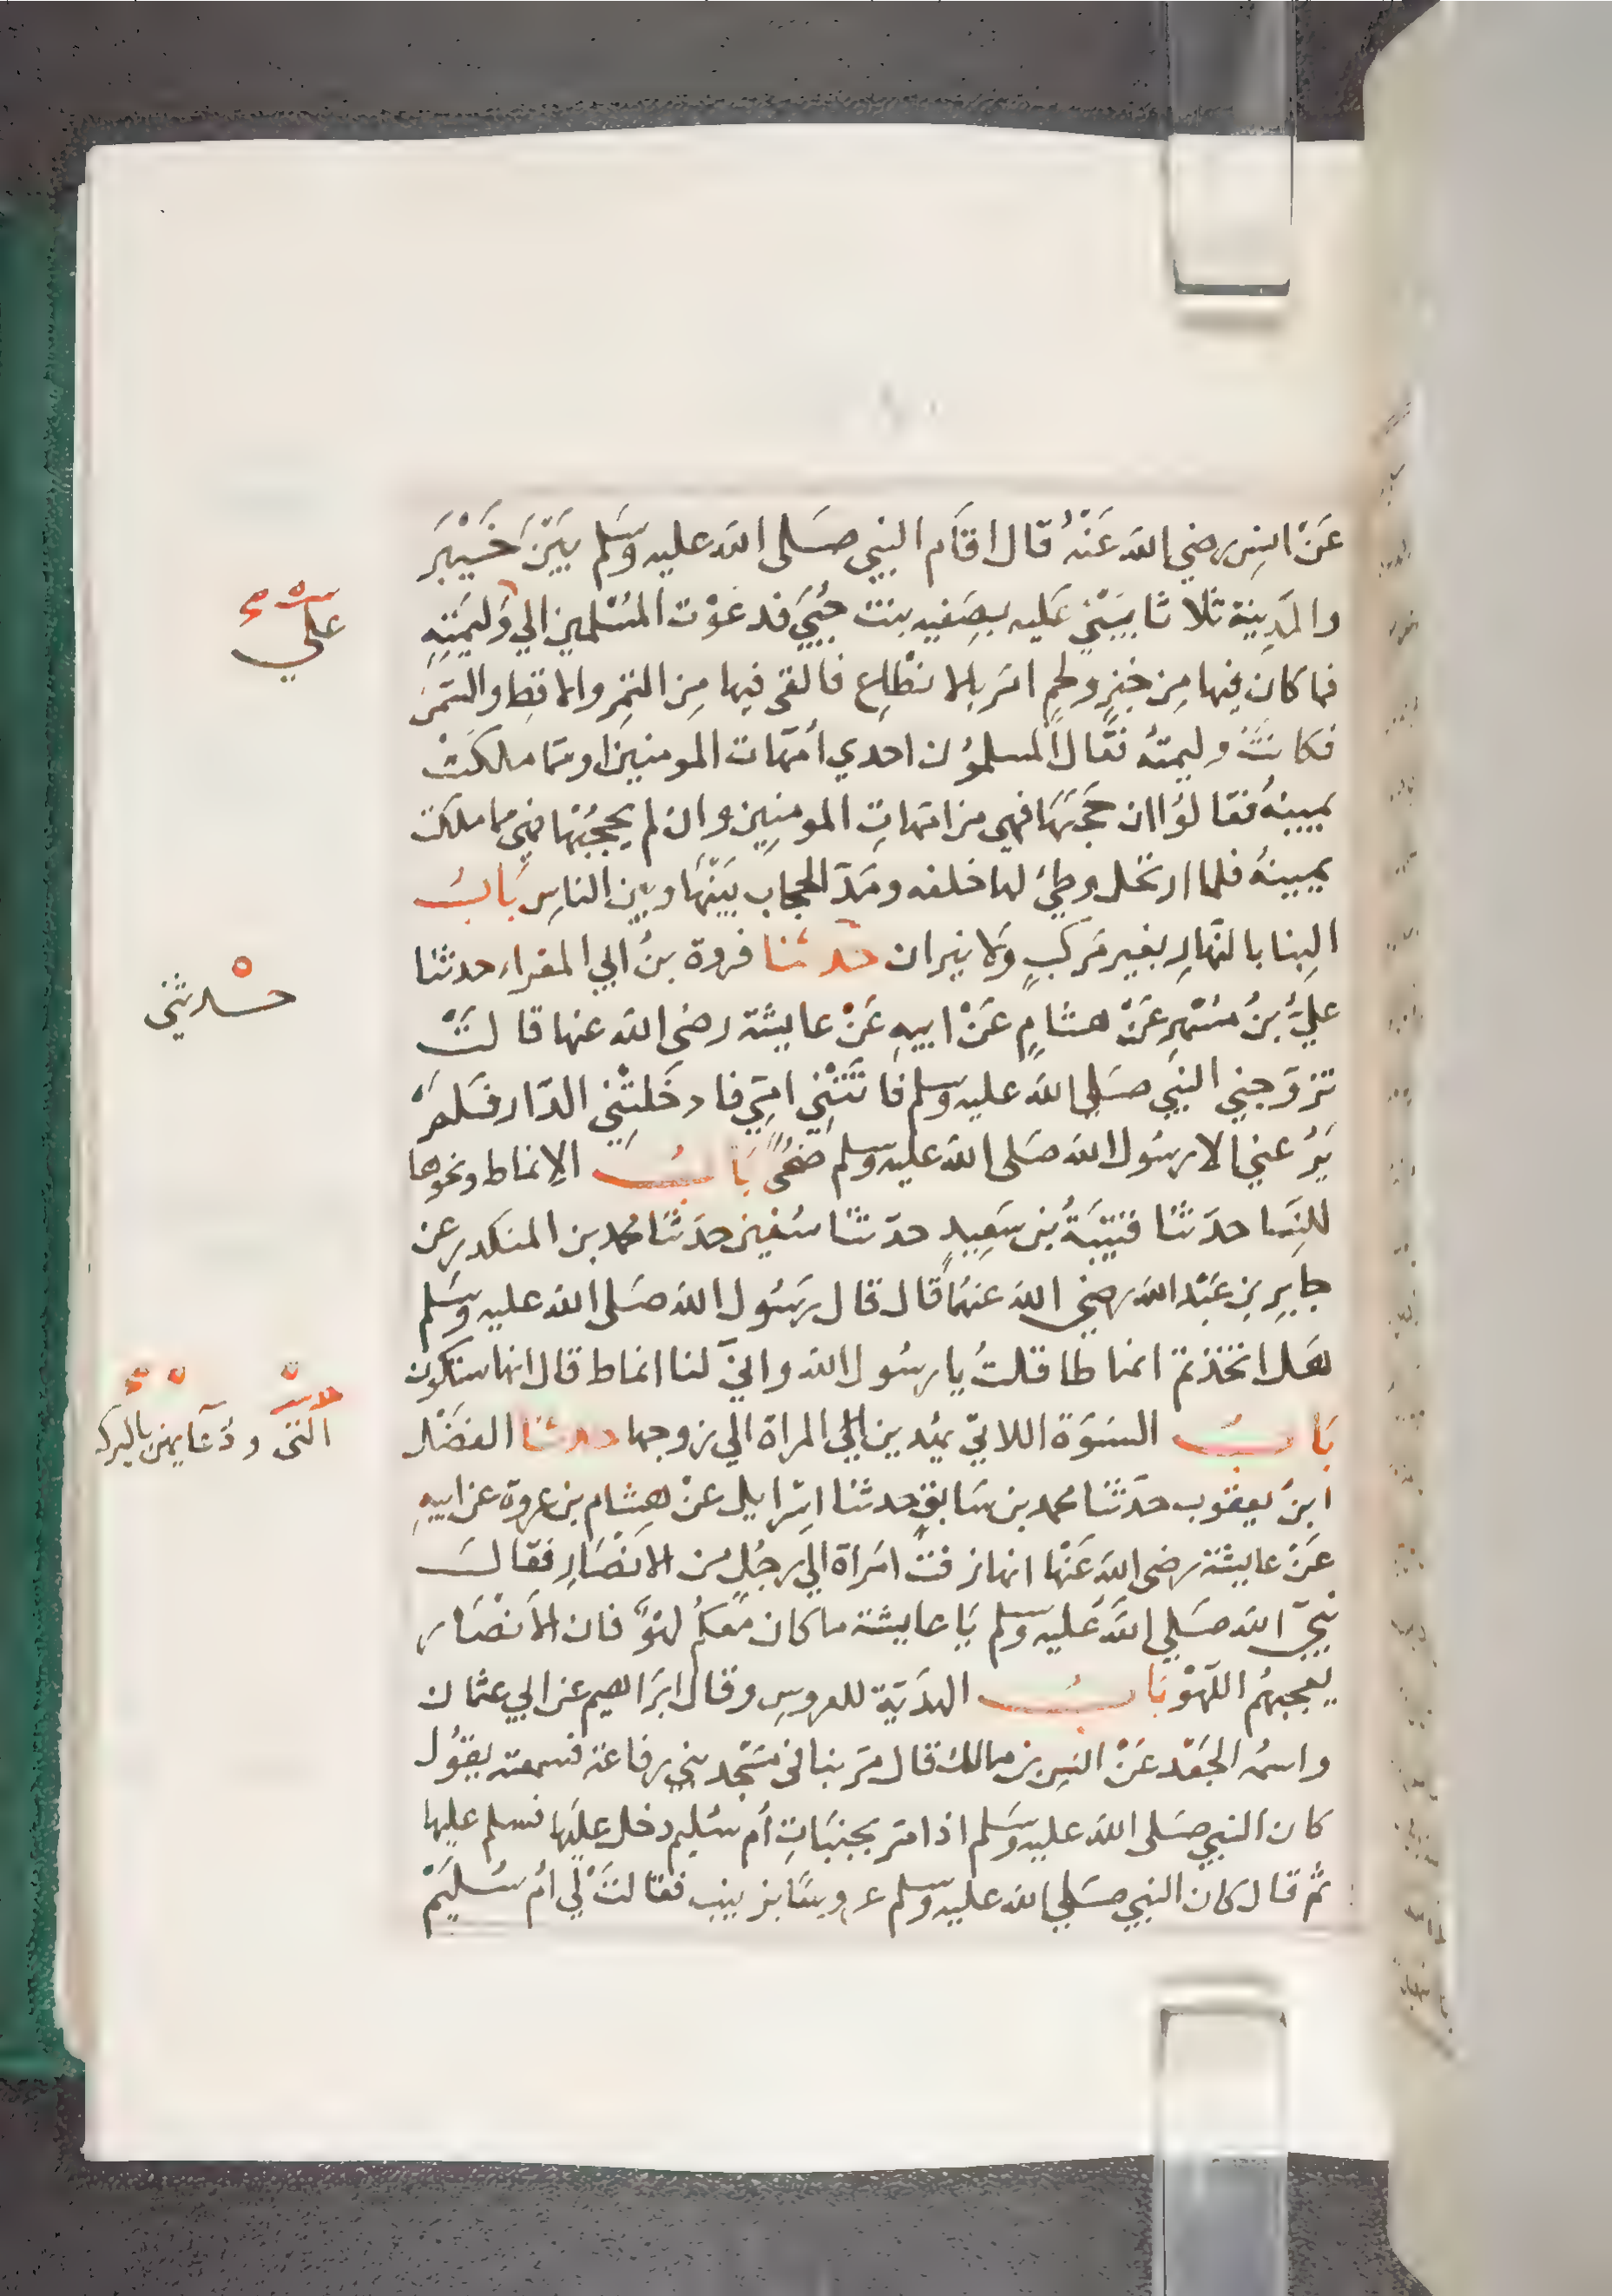 عَنْ انسٍ رضي الله عَنْهُ قال اقَام النبي صَلى الله عليه وسَلم بَيْنَ خَيْبَرَ
والمَدِينة ثلاثا يُبْنَي عَليه بصَفِيه بنت حُيَيّ فدعَوْت المُسْلمين الي وَليمَتِهِ
فما كان فيها مِن خبزٍ ولحمٍ امَر بالانْطَاع فالقى فيها مِن التمِر والاقِط والسَّمْن
فكانَتْ وليمتهُ فقال المسلمُون احدي أمّهات المومنينَ او مّما ملكَتْ
يمينهُ فقالوُا ان حَجَبَهَا فهي من امّهاتِ المومنِين وان لم يحجُبْها فهي مما ملكت
يمينهُ فلما ارتحَل وطيَّ لها خلفه ومَدّ الحجاب بَيْنَهَا وبين الناسِ بَابُ
البِنا بالنَّهارِ بغير مَركبٍ وَلا نيران حَدثنا فروة بنُ ابي المغراء حدثنا
عليُّ بنُ مُسْهرٍ عَنْ هشامٍ عَنْ ابيهِ عَنْ عايشة رضى الله عنها قالتْ
تزوّجني النبي صَلي الله عليه وسلم فاتَتْنِي امّي فادخَلتْنِي الدّار فلَمْ
يَرُعني الا رسُول الله صَلى الله عليه وسلم ضُحًى بَابُ الانماط ونحوها
للنِسَا حدّثنَا قتيْبَةُ بن سَعِيدٍ حدّثنا سُفين حدّثنا محمد بن المنكدر عن
جابِرِ بن عَبْد الله رضي الله عنهُمَا قال قال رسُول الله صَلى الله عليه وسَلم
هَل اتخذتمْ انماطا قلتُ يا رسُول الله وانيّ لنا انماط قال انها ستكون
بَابُ النسْوَة اللاتيّ يُهْدين المراة الي زوجها حدثنا الفضْل
ابنُ يعقوب حدّثنا محمد بن سَابقٍ حدثنا اسْرايل عَنْ هِشام بن عروة عن ابيهِ
عَنْ عايشة رضى الله عَنْها انها زفت امْرَاة الي رجُلٍ من الانصَارِ فقالَ
نبيّ الله صَلي الله عَليه وسلم يَا عايشة ما كان معكمُ لهْوٌ فان الأنْصَار
يعجبهُم اللّهْوْ بَابُ الهدَيّة للعروسِ وقال ابْرَاهيم عن ابي عثمان
واسمُه الجَعْد عَنْ انسِ بن مالك قال مَرّ بنا في مسْجد بني رفاعة فسمعته يقوُل
كان النبي صَلى الله عليه وسَلم اذا مَرّ بجنبَاتِ أم سُليم دخل عليَها فسلم عليها
ثُم قال كان النبي صَلي الله عليه وسلم عروسًا بزينب فقالتْ لي أم سُليَمْ
علي
حدثني
النبى ودُعَايهن بالبركه